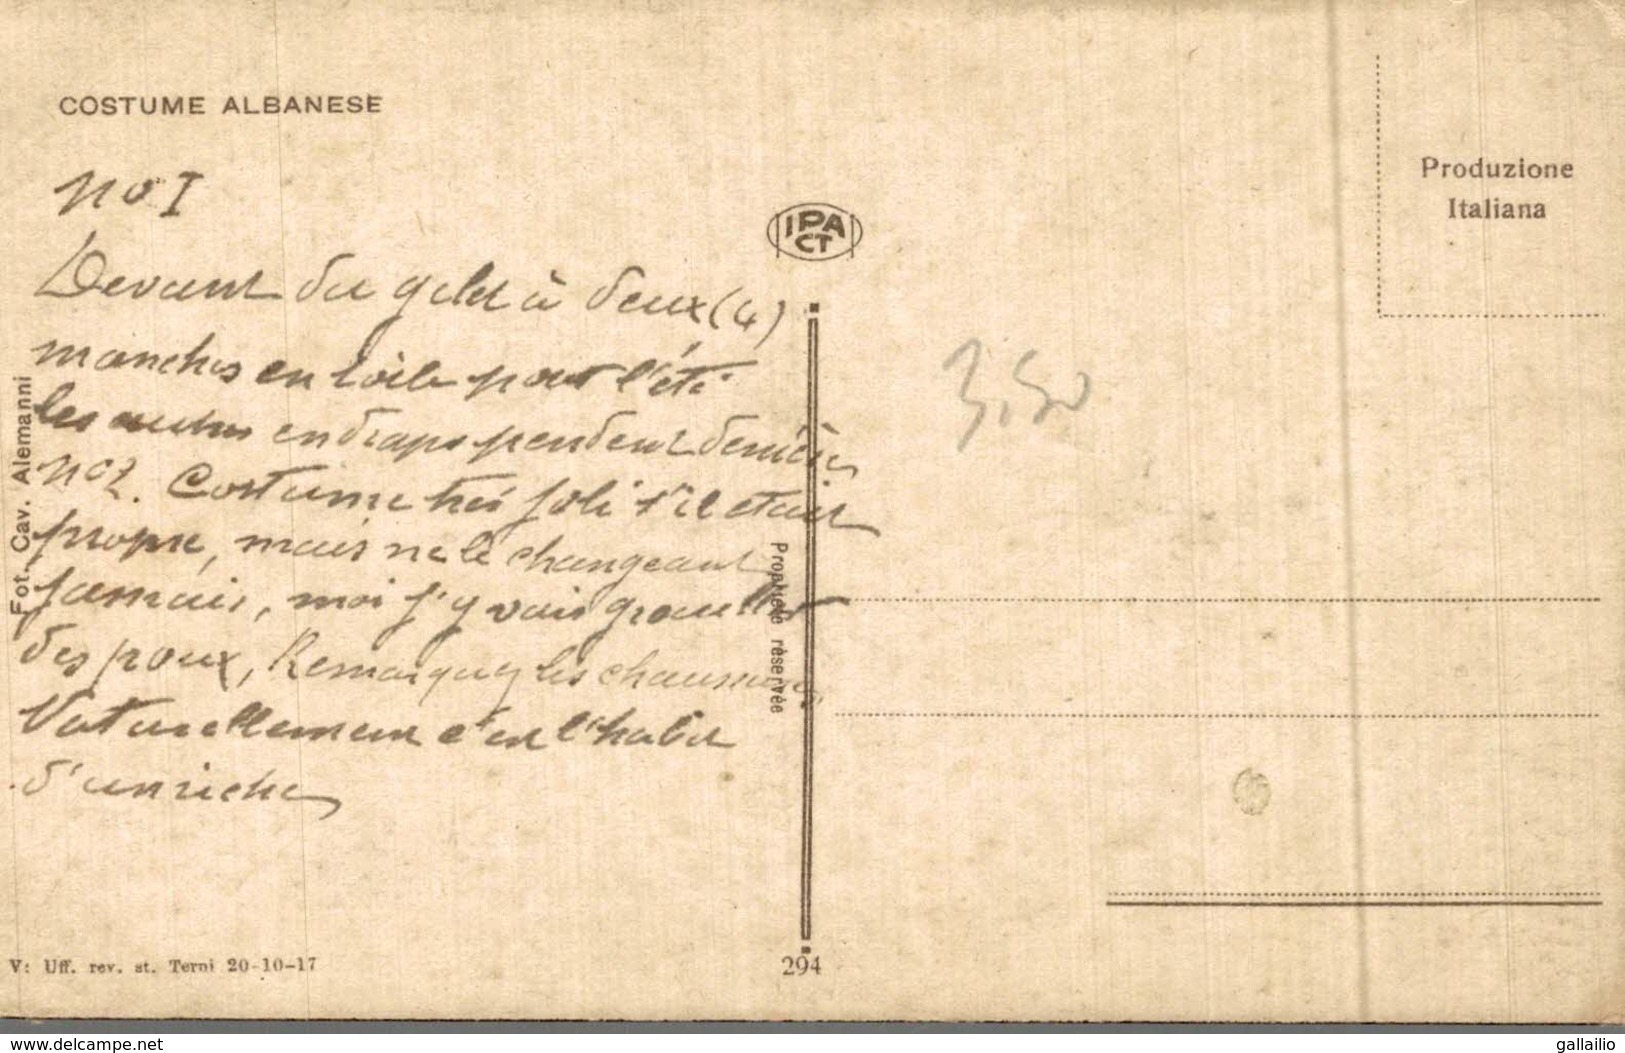 COSTUME ALBANESE
No I
Devant du gilet à deux (4)
manches en toile pour l'été
les autres en drap pendent derrière
No 2. Costume très joli s'il était
propre, mais ne le changeant
jamais, moi j'y vois grouiller
des poux, Remarquez les chaussures
Naturellement c'est l'habit
d'un riche
Fot. Cav. Alemanni
V: Uff. rev. st. Terni 20-10-17
IPA
CT
Propriété rèservèe
294
Produzione
Italiana
3,50
delcampe.net
gallailio